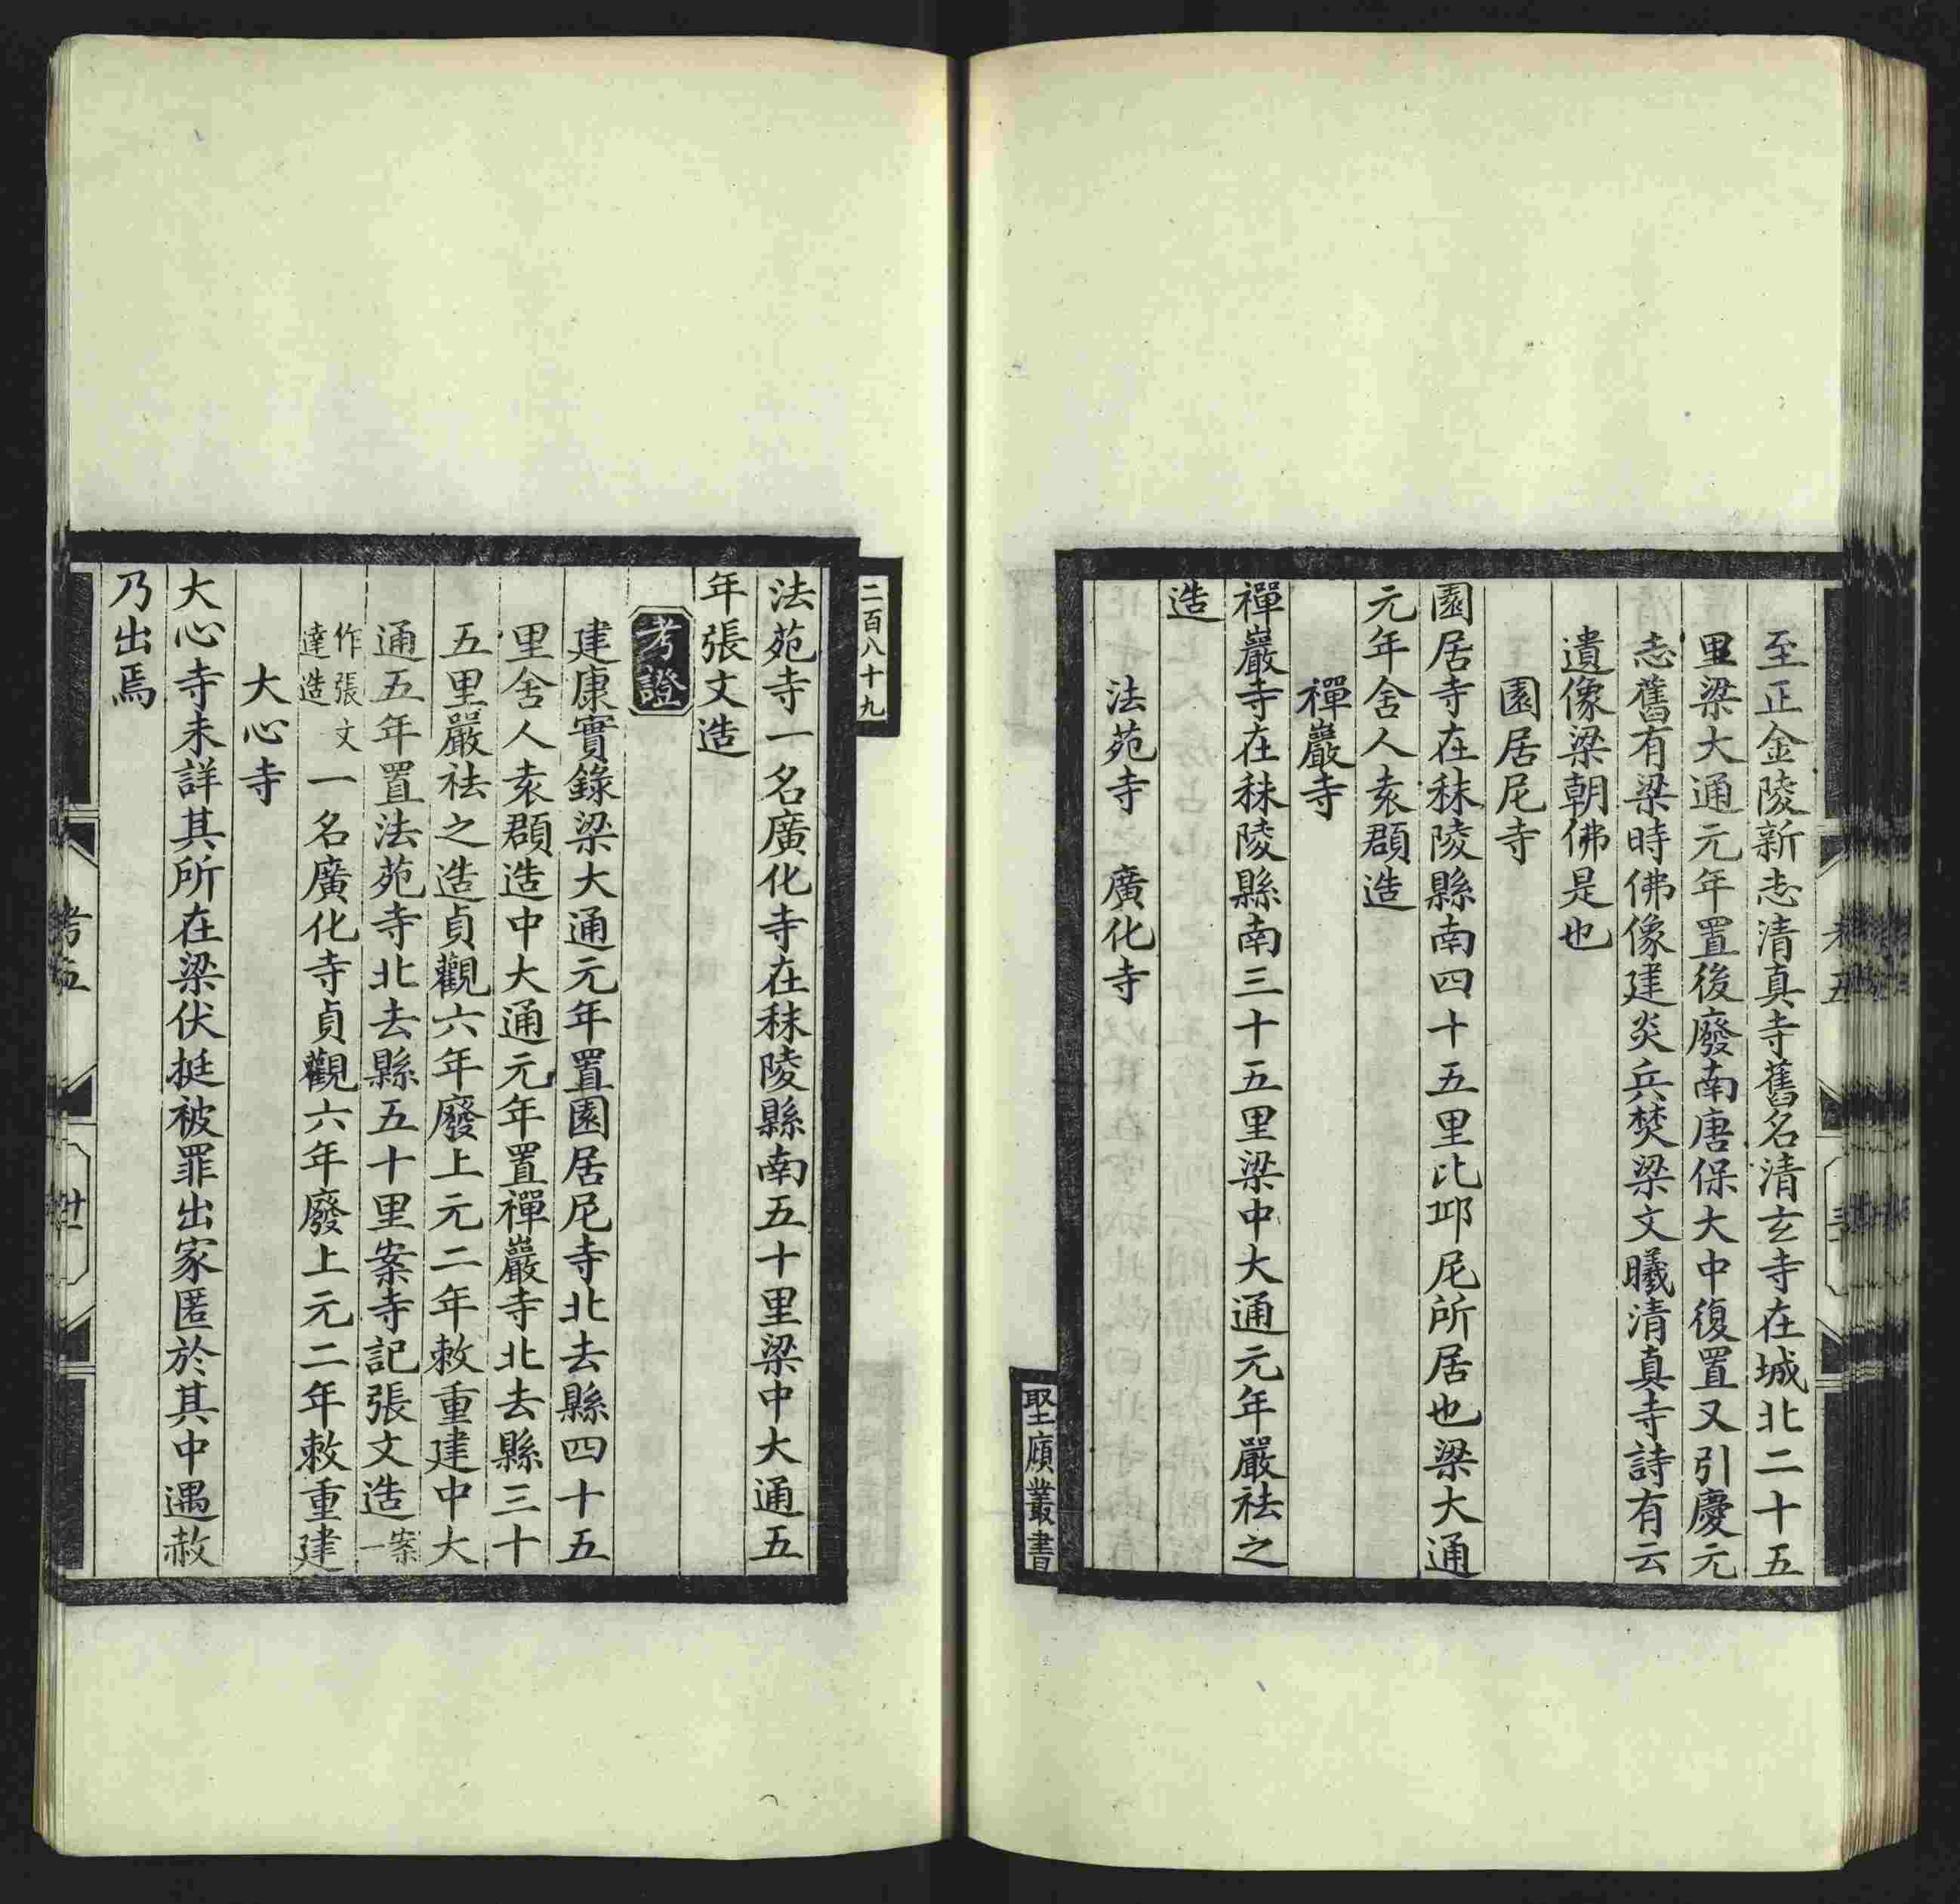 至正金陵新志清真寺舊名清玄寺在城北二十五
里梁大通元年置後廢南唐保大中復置又引慶元
志舊有梁時佛像建炎兵焚梁文曦清真寺詩有云
遺像梁朝佛是也
園居尼寺
園居寺在秣陵縣南四十五里比邱尼所居也梁大通
元年舍人袁頵造
禪巖寺
禪巖寺在秣陵縣南三十五里梁中大通元年嚴祛之
造
法苑寺　廣化寺
堅㢈叢書
二百八十九
法苑寺一名廣化寺在秣陵縣南五十里梁中大通五
年張文造
考證
建康實錄梁大通元年置園居尼寺北去縣四十五
里舍人袁頵造中大通元年置禪巖寺北去縣三十
五里嚴祛之造貞觀六年廢上元二年敕重建中大
通五年置法苑寺北去縣五十里案寺記張文造案一
作張文達造一名廣化寺貞觀六年廢上元二年敕重建
大心寺
大心寺未詳其所在梁伏挺被罪出家匿於其中遇赦
乃出焉
考五
卅